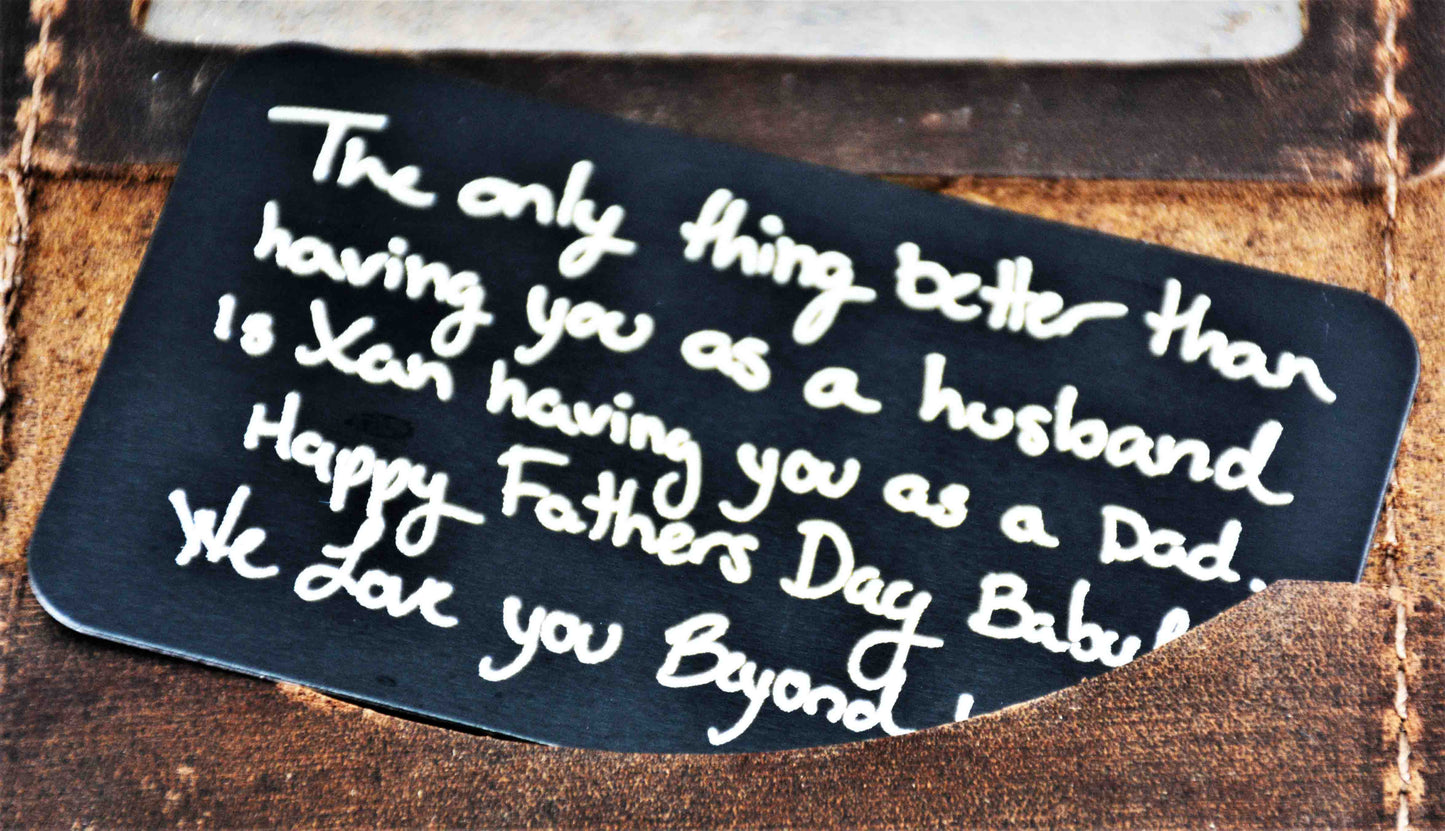 The only thing better than
having you as a husband
is Xan having you as a Dad.
Happy Fathers Day Baby!
We Love you Beyond